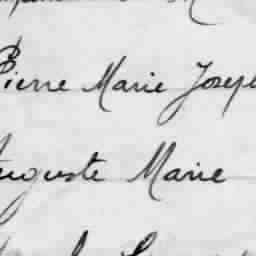 Pierre Marie Joseph
Auguste Marie